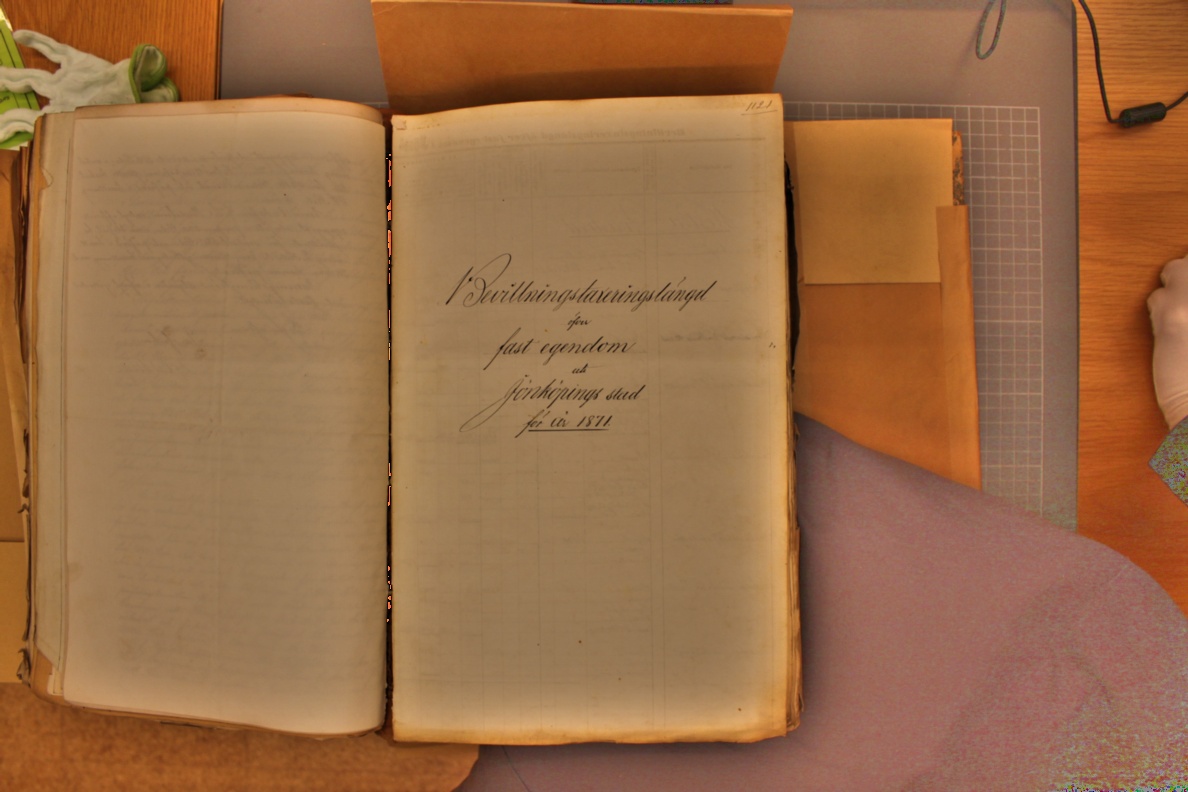 Bevillningstaxeringslängd
öfver
fast egendom
uti
Jönköpings stad
för år 1871.